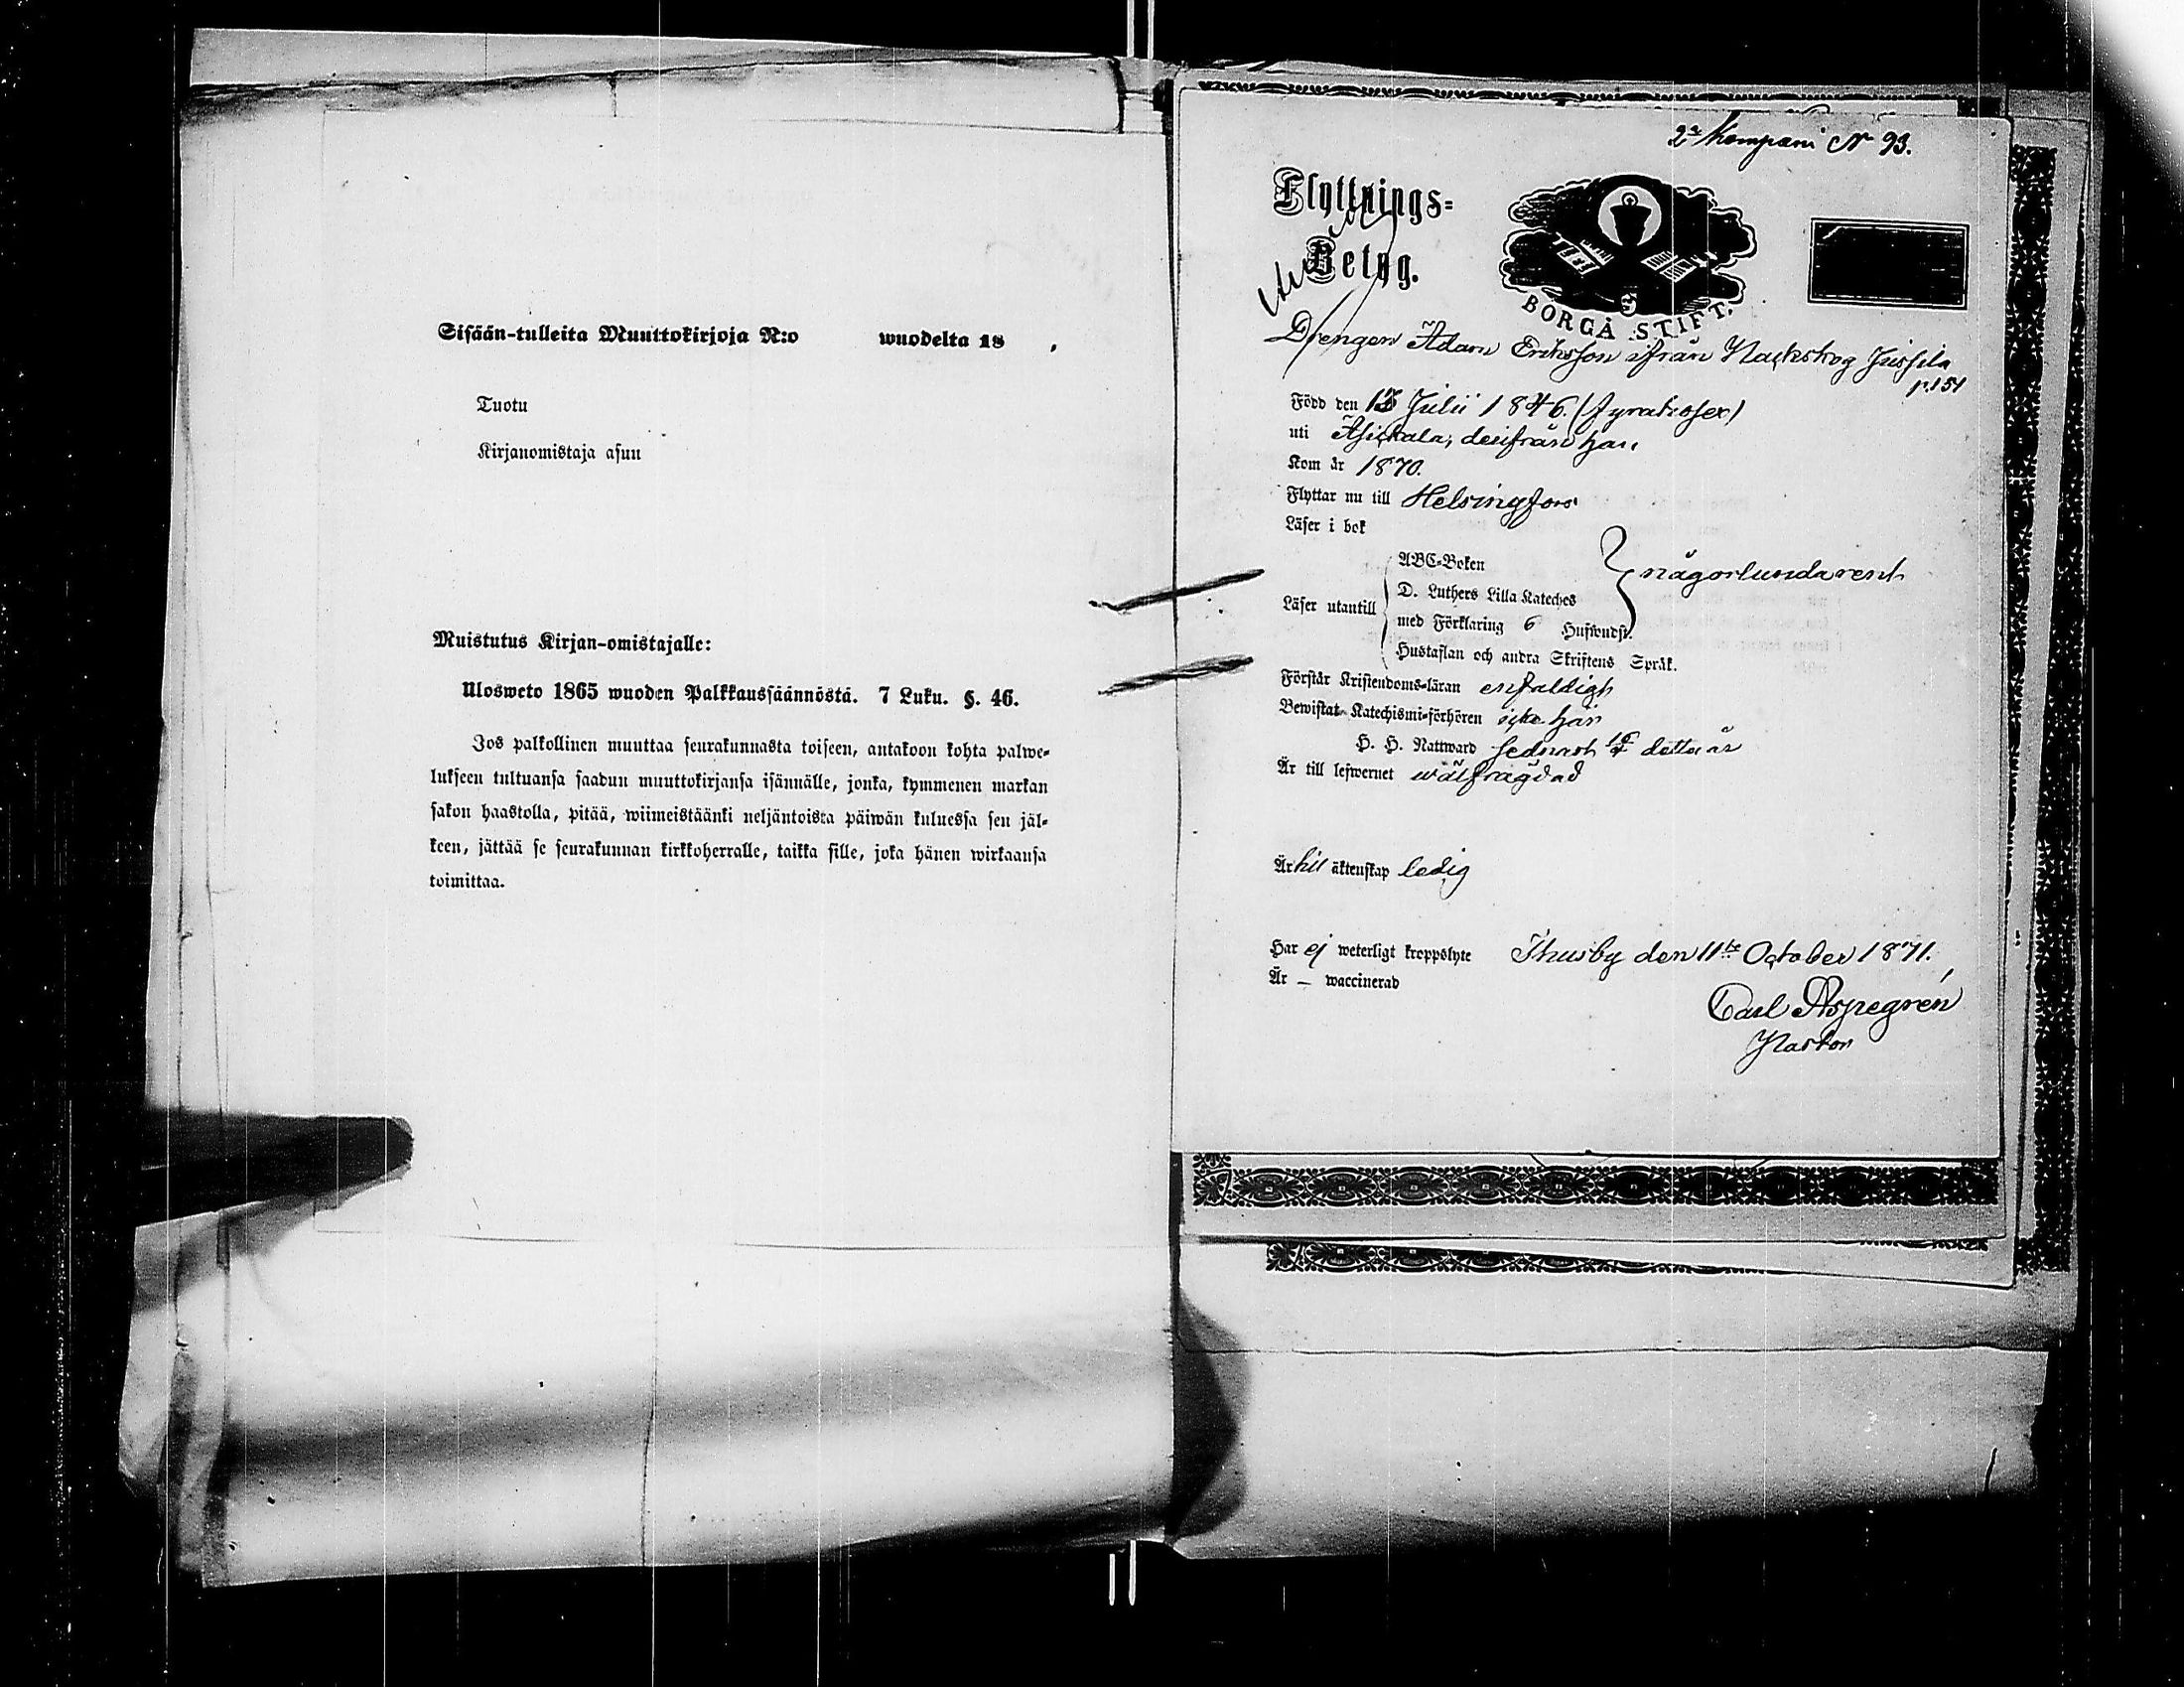 Sisään-tulleita Muuttokirjoja N:o wuodelta 18 .
Tuotu
Kirjanomistaja asuu
Muistutus Kirjan-omistajalle:
Ulosweto 1865 wuoden Palkkaussäännöstä. 7 Luku. §. 46.
Jos palkollinen muuttaa seurakunnasta toiseen, antakoon kohta palwe-
lukseen tultuansa saadun muuttokirjansa isännälle, jonka, kymmenen markan
sakon haastolla, pitää, wiimeistäänki neljäntoista päiwän kuluessa sen jäl-
keen, jättää se seurakunnan kirkkoherralle, taikka sille, joka hänen wirkaansa
toimittaa.
2a Kompani N 93.
Flyttnings-
Betyg.
BORGÅ STIFT.
Drengen Adam Eriksson ifrån Nackskog Jussila
p. 154
Född den 13 Julii 1846. (fyratiosex)
uti Asickala, derifrån han
Kom år 1870.
Flyttar nu till Helsingfors
Läser i bok
Läser utantill
ABC-Boken
D. Luthers Lilla Kateches
med Förklaring 6 Hufwudst.
Hustaflan och andra Skriftens Språk.
någorlunda rent
Förstår Kristendoms-läran enfaldigt
Bewistat Katechismi-förhören icke här
H. H. Nattward sednast detta år
Är till lefwernet wälfrägdad
Är till äktenskap ledig
Har ej weterligt kroppslyte Thusby den 11te October 1871.
Är — waccinerad
Carl Aspegrén
Pastor